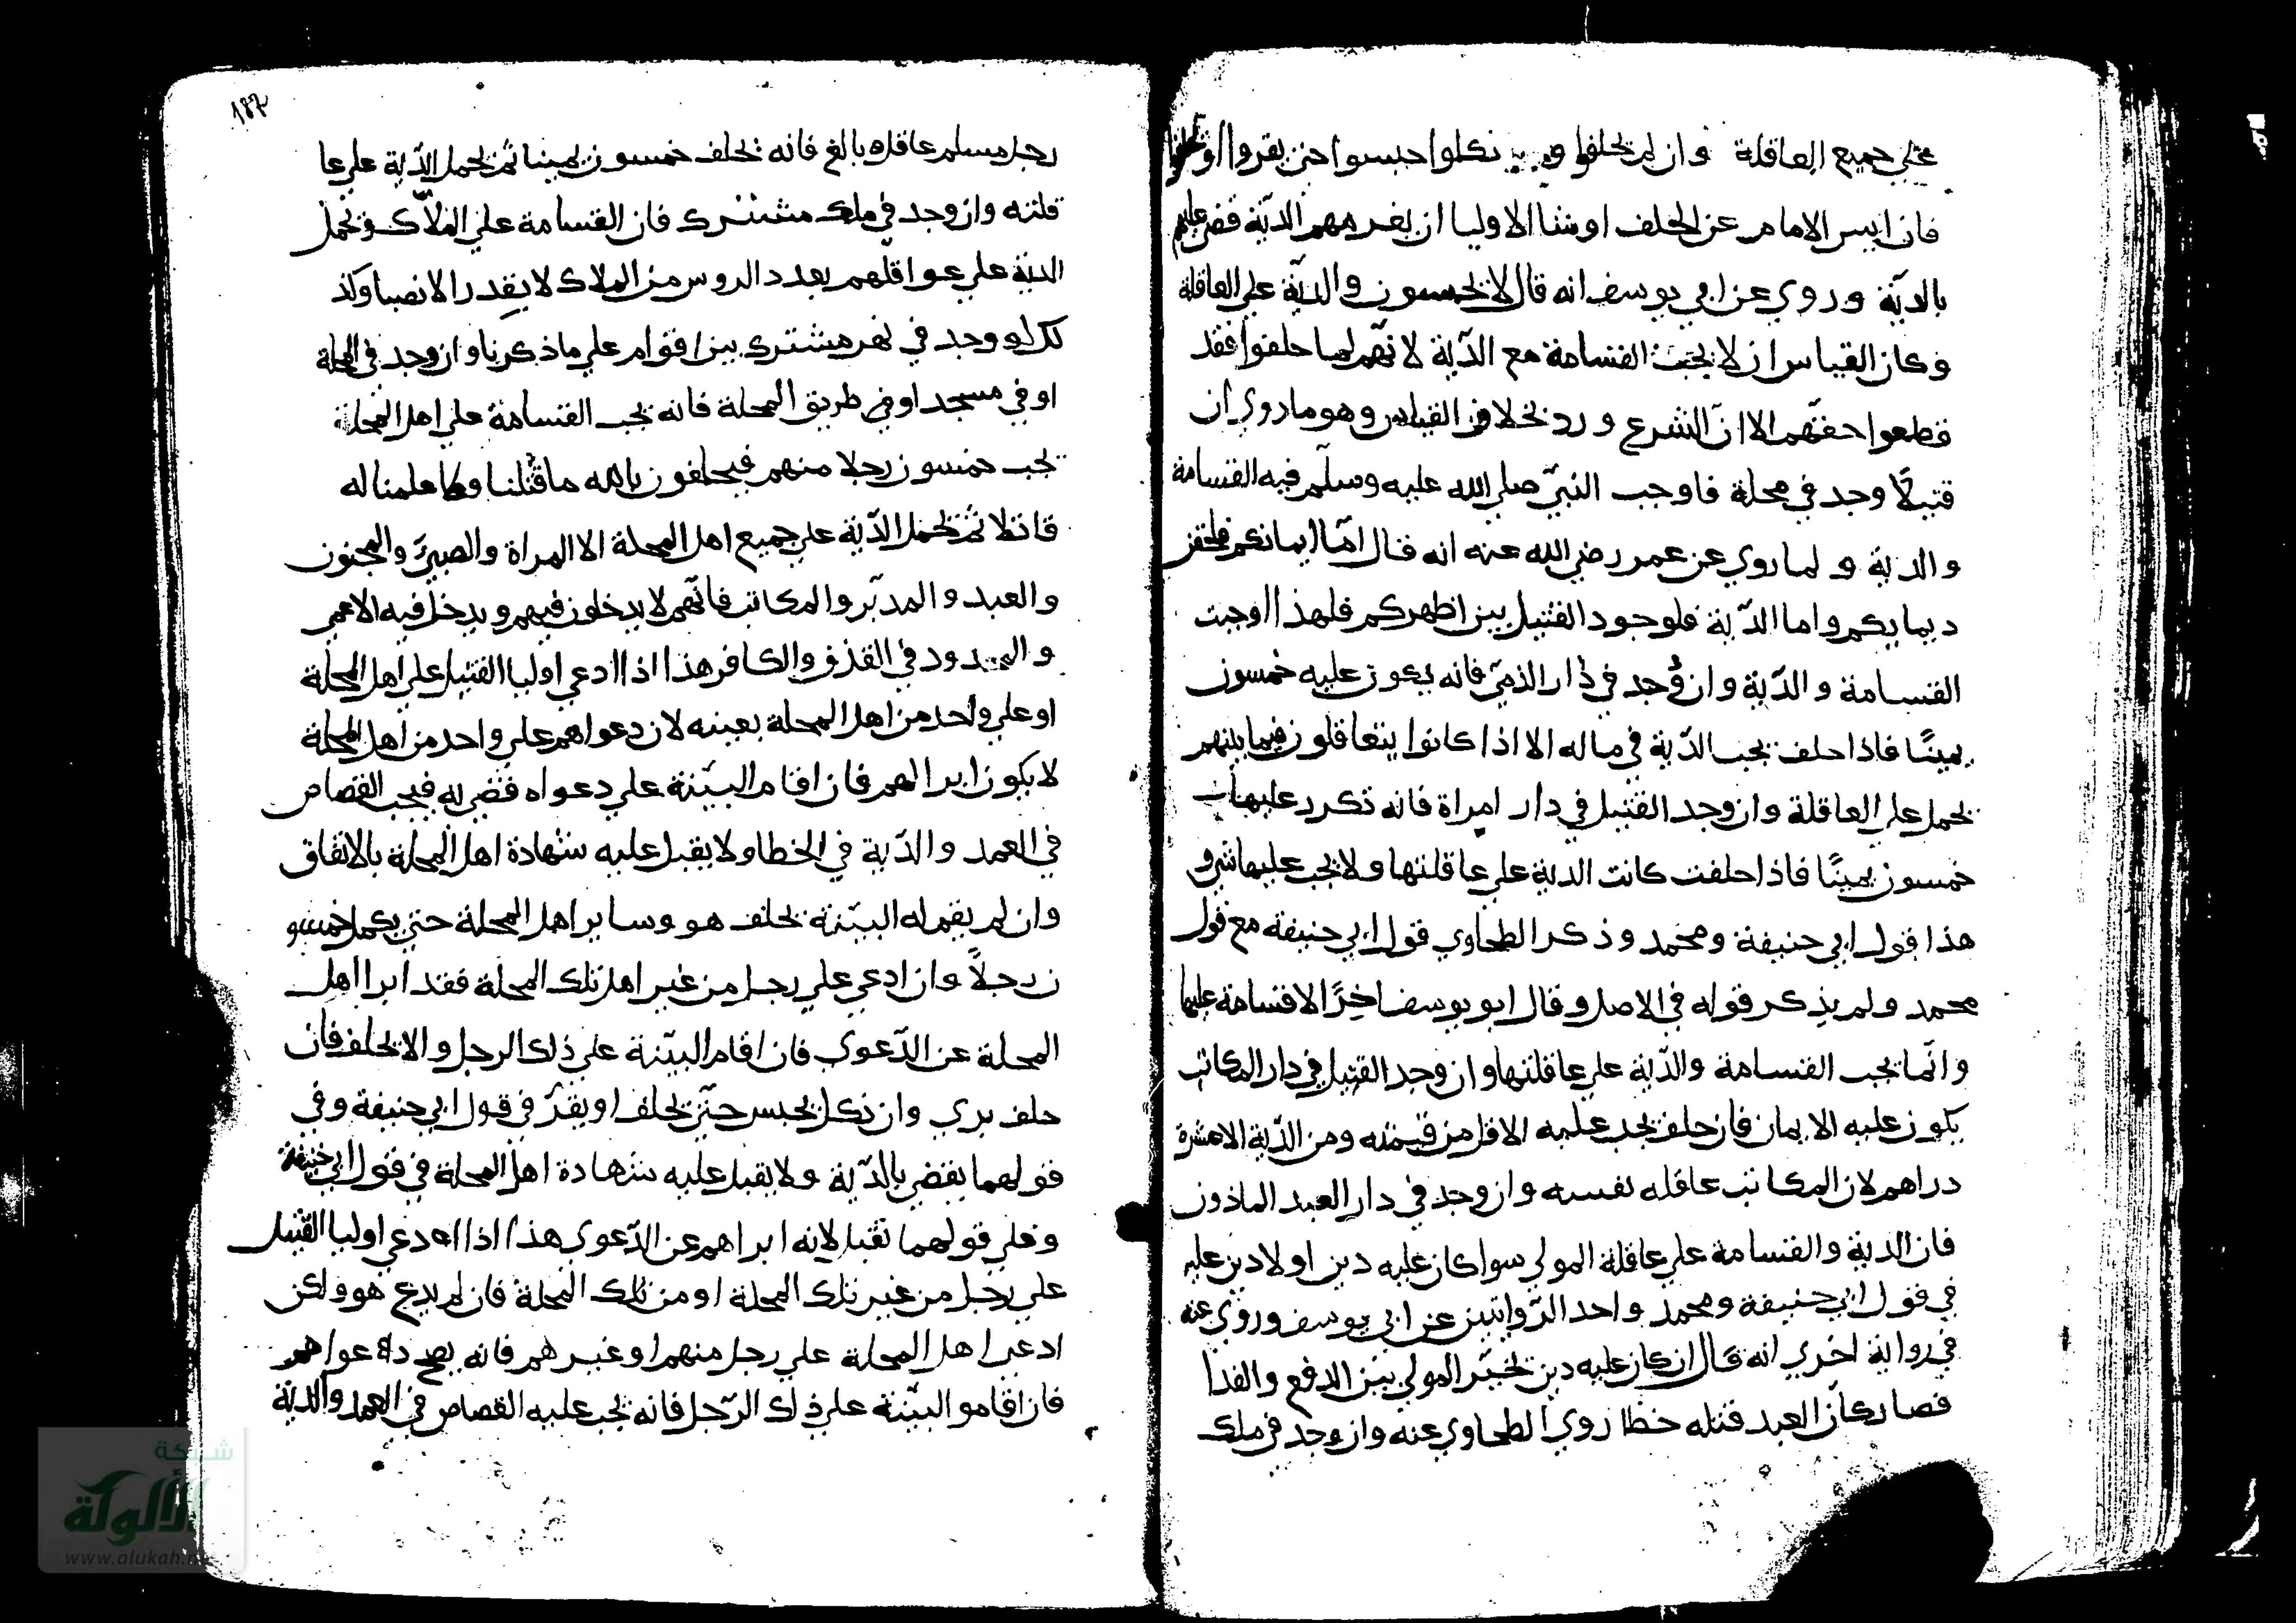 علي جميع العاقلة وان لم يحلفوا و نكلوا حبسوا حتي يقروا او يحلفوا
فان ايس الامام عن الحلف او شا الاوليا ان يغرمهم الدّية قضي عليهم
بالديّة وروي عن ابي يوسف انه قال لا يحبسون والديّة علي العاقلة
وكان القياس ان لا يجب القسامة مع الدّية لانّهم لما حلفوا فقد
قطعوا حقّهم الا انّ الشرع ورد بخلاف القياس وهو ما روي ان
قتيلاً وجد في محلة فاوجب النبيّ صلي الله عليه وسلّم فيه القسامة
والدية و لما روي عن عمر رضي الله عنه انه قال امّا ايمانكم فلحقن
دمايكم واما الدّية فلوجود القتيل بين اظهركم فلهذا اوجبت
القسامة والدّية وان وُجد في دار الذميّ فانه يكون عليه خمسون
يمينًا فاذا حلف يجب الدّية في ماله الا اذا كانوا يتعاقلون فيما بينهم
يحمل علي العاقلة وان وجد القتيل في دار امراة فانه تكرر عليها
خمسون يمينًا فاذا حلفت كانت الدية علي عاقلتها ولا يجب عليها شي و
هذا قول ابي حنيفة ومحمد وذكر الطحاوي قول ابي حنيفة مع قول
محمد ولم يذكر قوله في الاصل وقال ابو يوسف اخِرًا لا قسامة عليها
وانّما يجب القسامة والدّية علي عاقلتها وان وجد القتيل في دار المكاتب
يكون عليه الايمان فان حلف يجب عليه الاقل من قيمته ومن الدّية الا عشرة
دراهم لان المكاتب عاقله نفسه وان وجد في دار العبد الماذون
فان الدية والقسامة علي عاقلة المولي سوا كان عليه دين او لا دين عليه
في قول ابي حنيفة ومحمد واحد الرّوايتين عن ابي يوسف وروي عنه
في رواية اخري انه قال ان كان عليه دين يخيّر المولي بين الدفع والفدا
فصار كانّ العبد قتله خطا روي الطحاوي عنه وان وجد في ملك
187
رجل مسلم عاقل بالغ فانه يحلف خمسون يمينا ثم يحمل الدّية علي عا
قلته وان وجد في ملك مشترك فان القسامة علي الملاّك وتحمل
الدية علي عواقلهم بعدد الروس من الملاك لا بقدر الانصبا وكذ
لك لو وجد في نهر مشترك بين اقوام علي ما ذكرنا وان وجد في المحلة
او في مسجد او في طريق المحلة فانه يجب القسامة علي اهل المحلة
يجب خمسون رجلا منهم فيحلفون بالله ما قتلنا وما علمنا له
قاتلا ثم تحمل الدّية علي جميع اهل المحلة الا المراة والصبيّ والمجنون
والعبد والمدبّر والمكاتب فانّهم لا يدخلون فيهم ويدخل فيه الاعمي
والمحدود في القذف والكافر هذا اذا ادعي اوليا القتيل علي اهل المحلة
او علي واحد من اهل المحلة بعينه لان دعواهم علي واحد من اهل المحلة
لا يكون ابرا لهم فان اقام البيّنة علي دعواه قضي له فيجب القصاص
في العمد والدّية في الخطا ولا يقبل عليه شهادة اهل المحلة بالاتفاق
وان لم يقم له البيّنة يحلف هو وساير اهل المحلة حتي يكمل خمسو
ن رجلاً وان ادعي علي رجل من غير اهل تلك المحلة فقد ابرا اهل
المحلة عن الدّعوي فان اقام البيّنة علي ذلك الرجل والا يحلف فان
حلف بري وان نكل يحبس حتّي يحلف او يقرّ في قول ابي حنيفة وفي
قولهما يقضي بالدّية ولا يقبل عليه شهادة اهل المحلة في قول ابي حنيفة
وعلي قولهما تقبل لانه ابراهم عن الدّعوي هذا اذا ادعي اوليا القتيل
علي رجل من غير تلك المحلة او من تلك المحلة فان لم يدع هو ولكن
ادعي اهل المحلة علي رجل منهم او غيرهم فانه يصح دعواهم
فان اقامو البيّنة علي ذلك الرّجل فانه يجب عليه القصاص في العمد والدية
شبكة
الألوكة
www.alukah.n